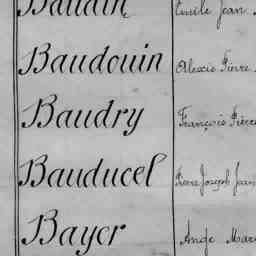 Baudin Emile Jean
Baudouin Alexis Pierre
Baudry François Pierre
Bauducel Pierre Joseph Jean
Bayer Ange Marie